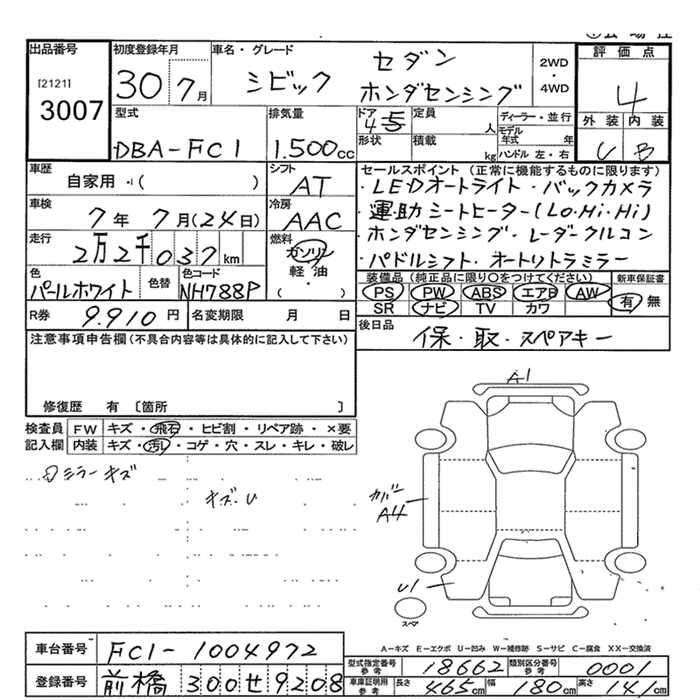 出品番号
[2121]
3007
初度登録年月
30年7月
車名・グレード
シビック
セダン
ホンダセンシング
2WD
・
4WD
評価点
4
外装 内装
B
型式
DBA-FC1
排気量
1.500cc
ドア
形状
定員 人
積載 kg
ディーラー・並行
モデル年式 年
ハンドル 左・右
車歴
自家用・( )
シフト
AT
車検
7年7月(24日)
冷房
AAC
走行
2万2千037km
燃料
ガソリン
軽油
( )
色
パールホワイト
色替
色コード
NH788P
R券
9.910円
名変期限 月 日
セールスポイント(正常に機能するものに限ります)
・LEDオートライト・バックカメラ
・運助シートヒーター(Lo・Hi・Hi)
・ホンダセンシング・レーダークルコン
・パドルシフト・オートリトラミラー
装備品(純正品に限り○をつけてください)
PS PW ABS エアB AW
SR ナビ TV カワ
新車保証書
有 無
後日品
保・取・スペアキー
注意事項申告欄(不具合内容等は具体的に記入して下さい)
修復歴 有 [箇所 ]
検査員
記入欄
FW キズ・飛石・ヒビ割・リペア跡・×要
内装 キズ・汚レ・コゲ・穴・スレ・キレ・破レ
ミラーキズ
キズ・U
A1
カバー
A4
U1
スペア
A-キズ E-エクボ U-凹み W-補修跡 S-サビ C-腐食 XX-交換済
車台番号
FC1-1004972
登録番号
前橋300せ9208
型式指定番号
参考
18662
類別区分番号
参考
0001
車庫証明用
参考
長さ 465cm
幅 180cm
高さ 141cm